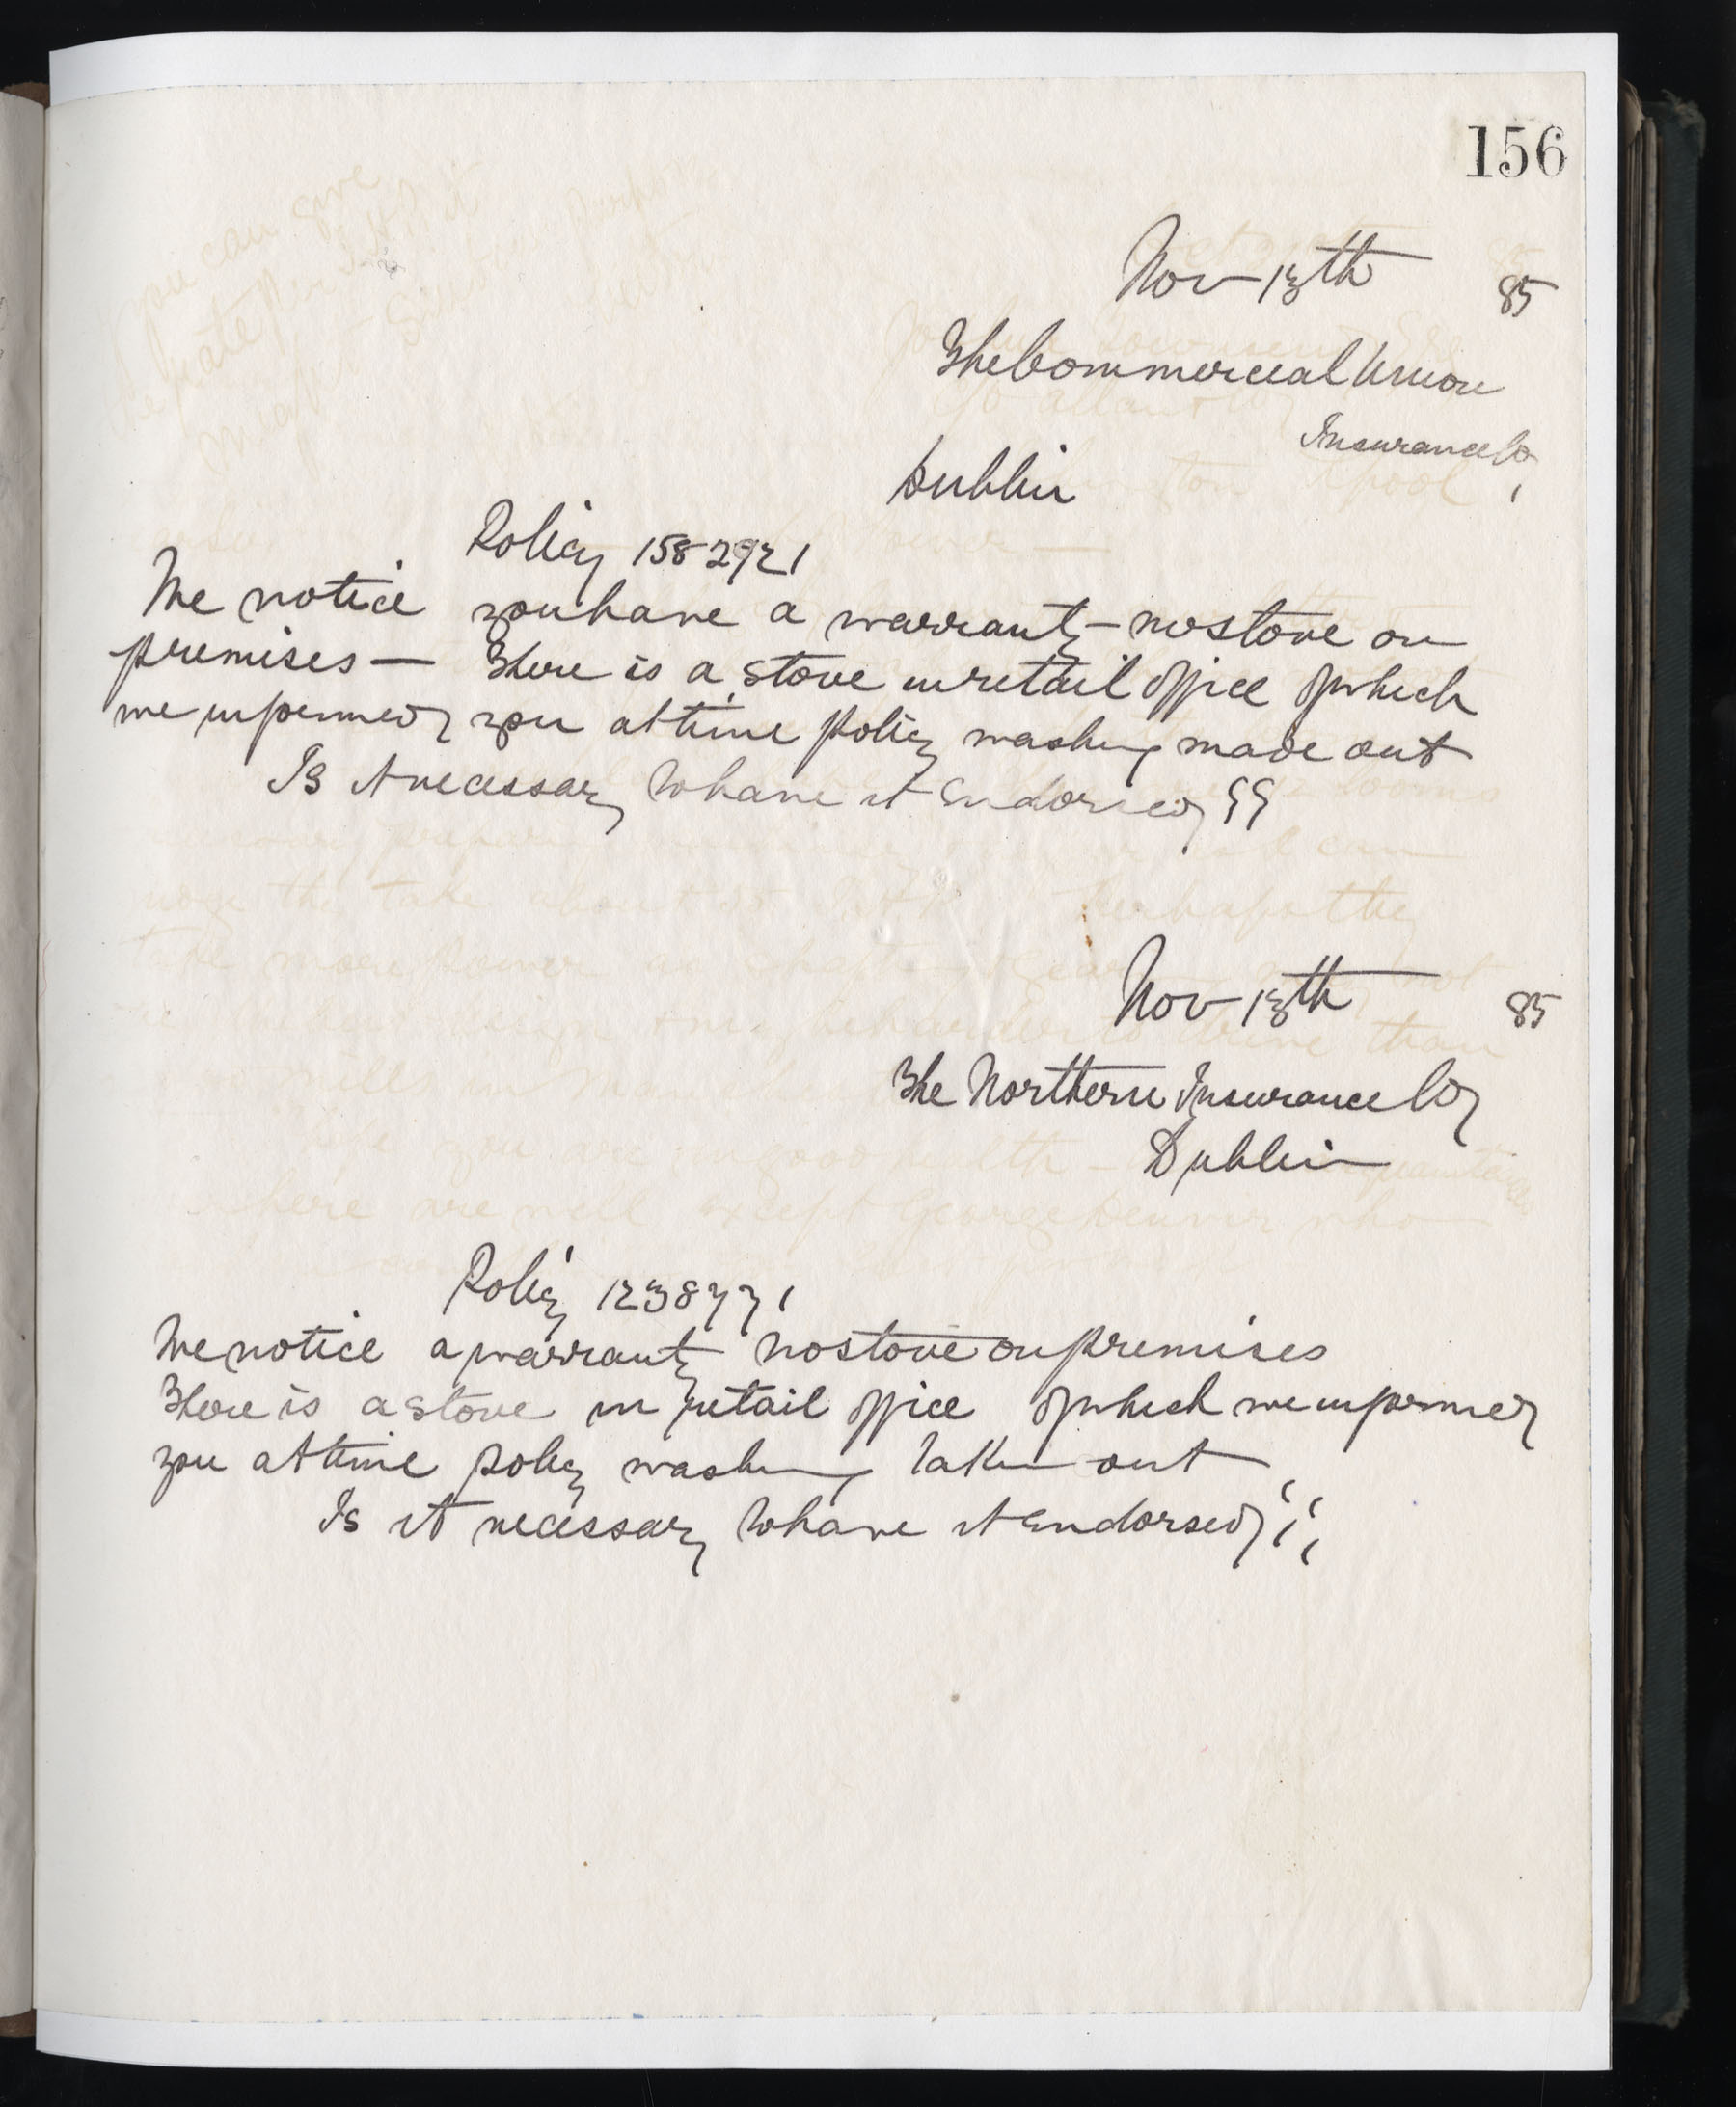 156
Nov 13th 85
The Commercial Union
Insurance Co
Dublin
Policy 1582921
We notice you have a warranty - no stove on
premises - There is a stove in retail office of which
we informed you at time policy was being made out
Is it necessary to have it Endorsed ??
Nov 13th 85
The Northern Insurance Co
Dublin
Policy 1238771
We notice a warranty no stove on premises
There is a stove in retail office of which we informed
you at time policy was being taken out
Is it necessary to have it Endorsed ??